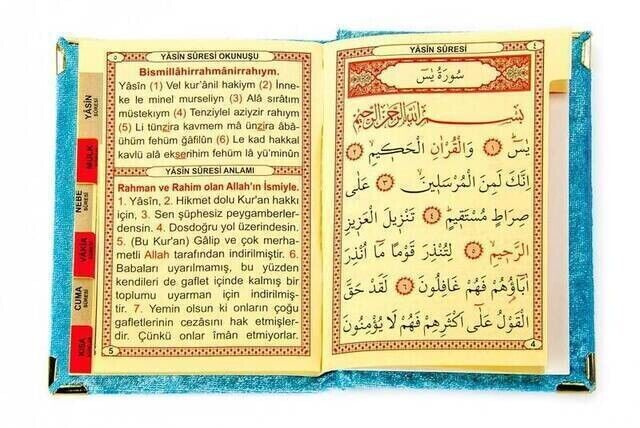 YÂSİN SÛRESİ
٤
سُورَةُ يٰسٓ
بِسْمِ اللّٰهِ الرَّحْمٰنِ الرَّحِيمِ
يٰسٓ ﴿١﴾ وَالْقُرْاٰنِ الْحَكِيمِ ﴿٢﴾
اِنَّكَ لَمِنَ الْمُرْسَلِينَ ﴿٣﴾ عَلٰى
صِرَاطٍ مُسْتَقِيمٍ ﴿٤﴾ تَنْزِيلَ الْعَزِيزِ
الرَّحِيمِ ﴿٥﴾ لِتُنْذِرَ قَوْمًا مَٓا اُنْذِرَ
اٰبَٓاؤُهُمْ فَهُمْ غَافِلُونَ ﴿٦﴾ لَقَدْ حَقَّ
الْقَوْلُ عَلٰٓى اَكْثَرِهِمْ فَهُمْ لَا يُؤْمِنُونَ
4
٥
YÂSİN SÛRESİ OKUNUŞU
Bismillâhirrahmânirrahıym.
Yâsîn (1) Vel kur'ânil hakiym (2) İnne-
ke le minel murseliyn (3) Alâ sırâtım
müstekıym (4) Tenziylel aziyzir rahıym
(5) Li tünzira kavmem mâ ünzira âbâ-
ühüm fehüm ğâfilûn (6) Le kad hakkal
kavlü alâ ekserihim fehüm lâ yü'minûn
YÂSİN SÛRESİ ANLAMI
Rahman ve Rahim olan Allah'ın İsmiyle.
1. Yâsîn, 2. Hikmet dolu Kur'an hakkı
için, 3. Sen şüphesiz peygamberler-
densin. 4. Dosdoğru yol üzerindesin.
5. (Bu Kur'an) Gâlip ve çok merha-
metli Allah tarafından indirilmiştir. 6.
Babaları uyarılmamış, bu yüzden
kendileri de gaflet içinde kalmış bir
toplumu uyarman için indirilmiş-
tir. 7. Yemin olsun ki onların çoğu
gafletlerinin cezasını hak etmişler-
dir. Çünkü onlar îmân etmiyorlar.
5
YÂSİN
SÛRESİ
MÜLK
SÛRESİ
NEBE
SÛRESİ
VÂKIA
SÛRESİ
CUMA
SÛRESİ
KISA